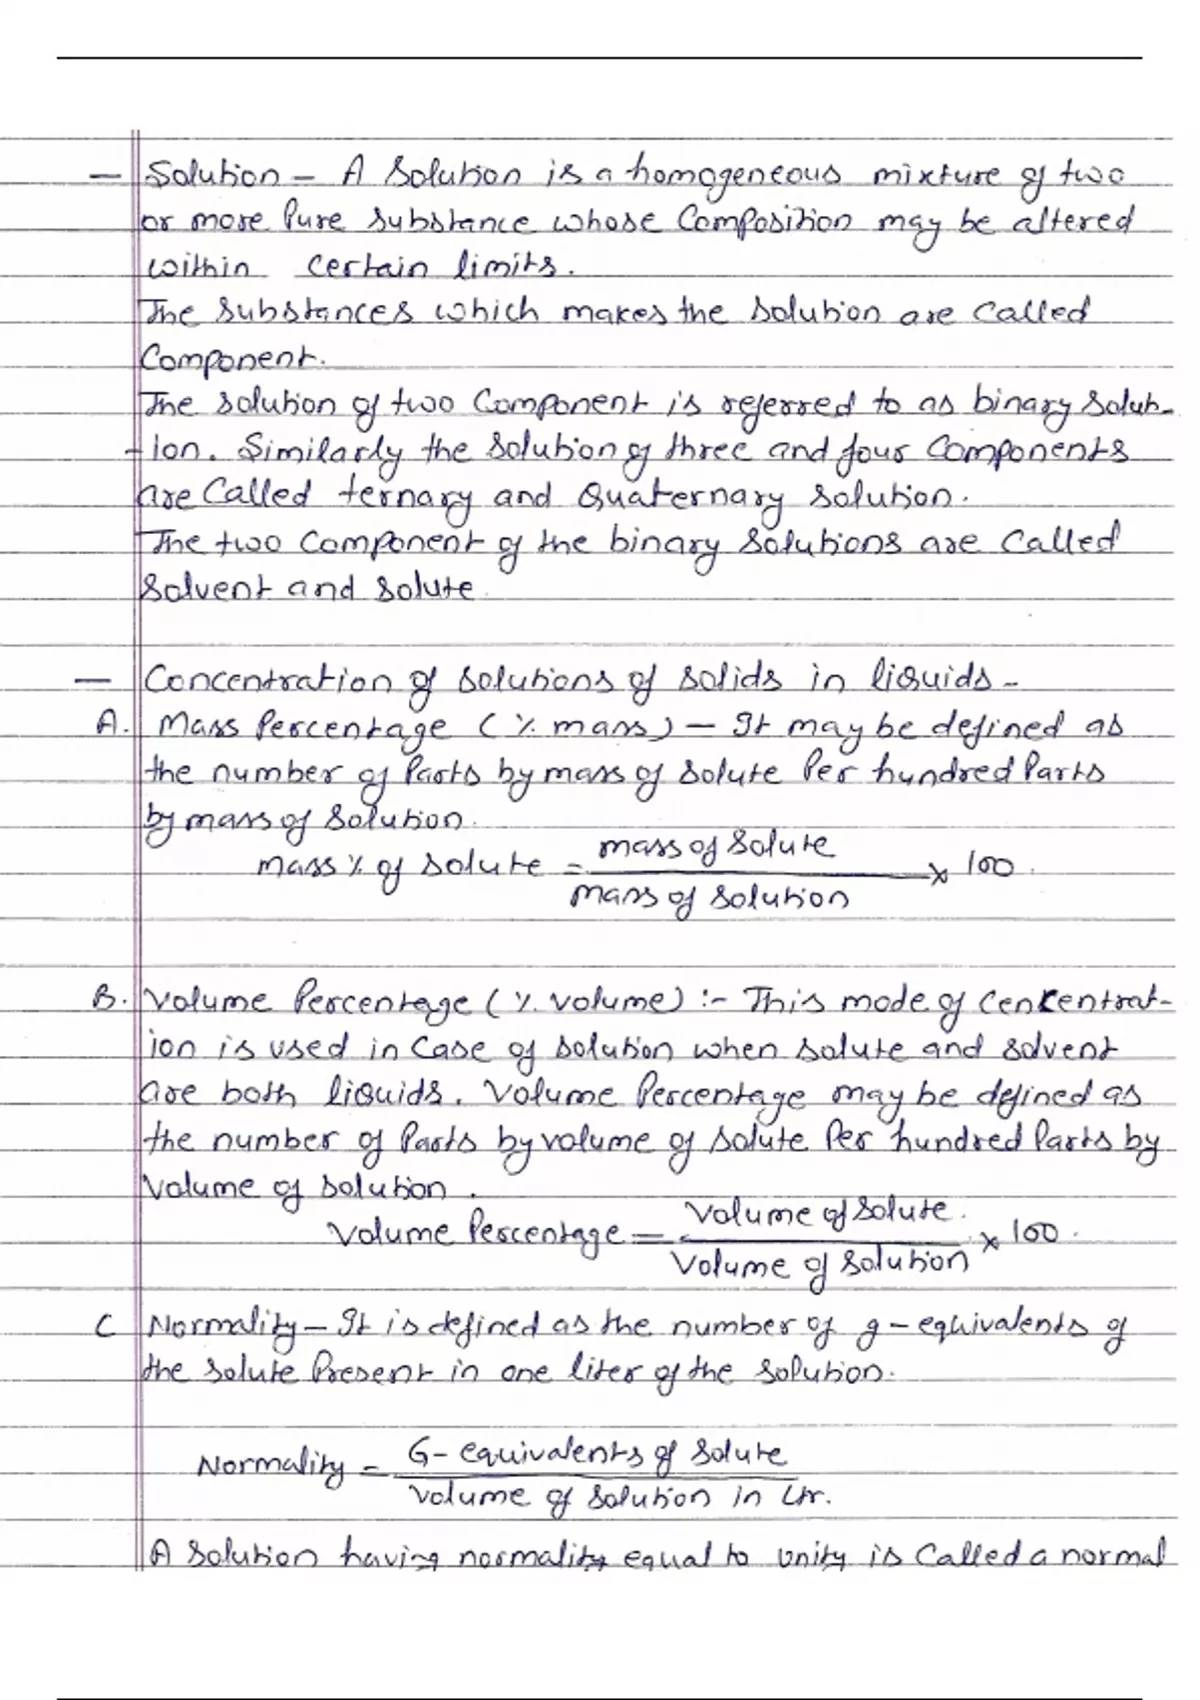 — Solution – A Solution is a homogeneous mixture of two
or more Pure substance whose Composition may be altered
within certain limits.
The substances which makes the solution are called
Component.
The solution of two Component is referred to as binary Solut-
-ion. Similarly the solution of three and four Components
are Called ternary and Quaternary solution.
The two Component of the binary solutions are called
Solvent and solute.
— Concentration of solutions of solids in liquids –
A. Mass Percentage (% mass) – It may be defined as
the number of Parts by mass of solute Per hundred Parts
by mass of solution.
mass % of solute = mass of solute / mass of solution × 100.
B. Volume Percentage (% volume) :- This mode of Cencentrat-
ion is used in Case of solution when solute and solvent
are both liquids. Volume Percentage may be defined as
the number of Parts by volume of solute Per hundred Parts by
Volume of solution.
Volume Percentage = Volume of Solute. / Volume of solution × 100.
C Normality – It is defined as the number of g-equivalents of
the solute Present in one liter of the solution.
Normality = G-equivalents of solute / Volume of solution in Ltr.
A solution having normality equal to unity is Called a normal